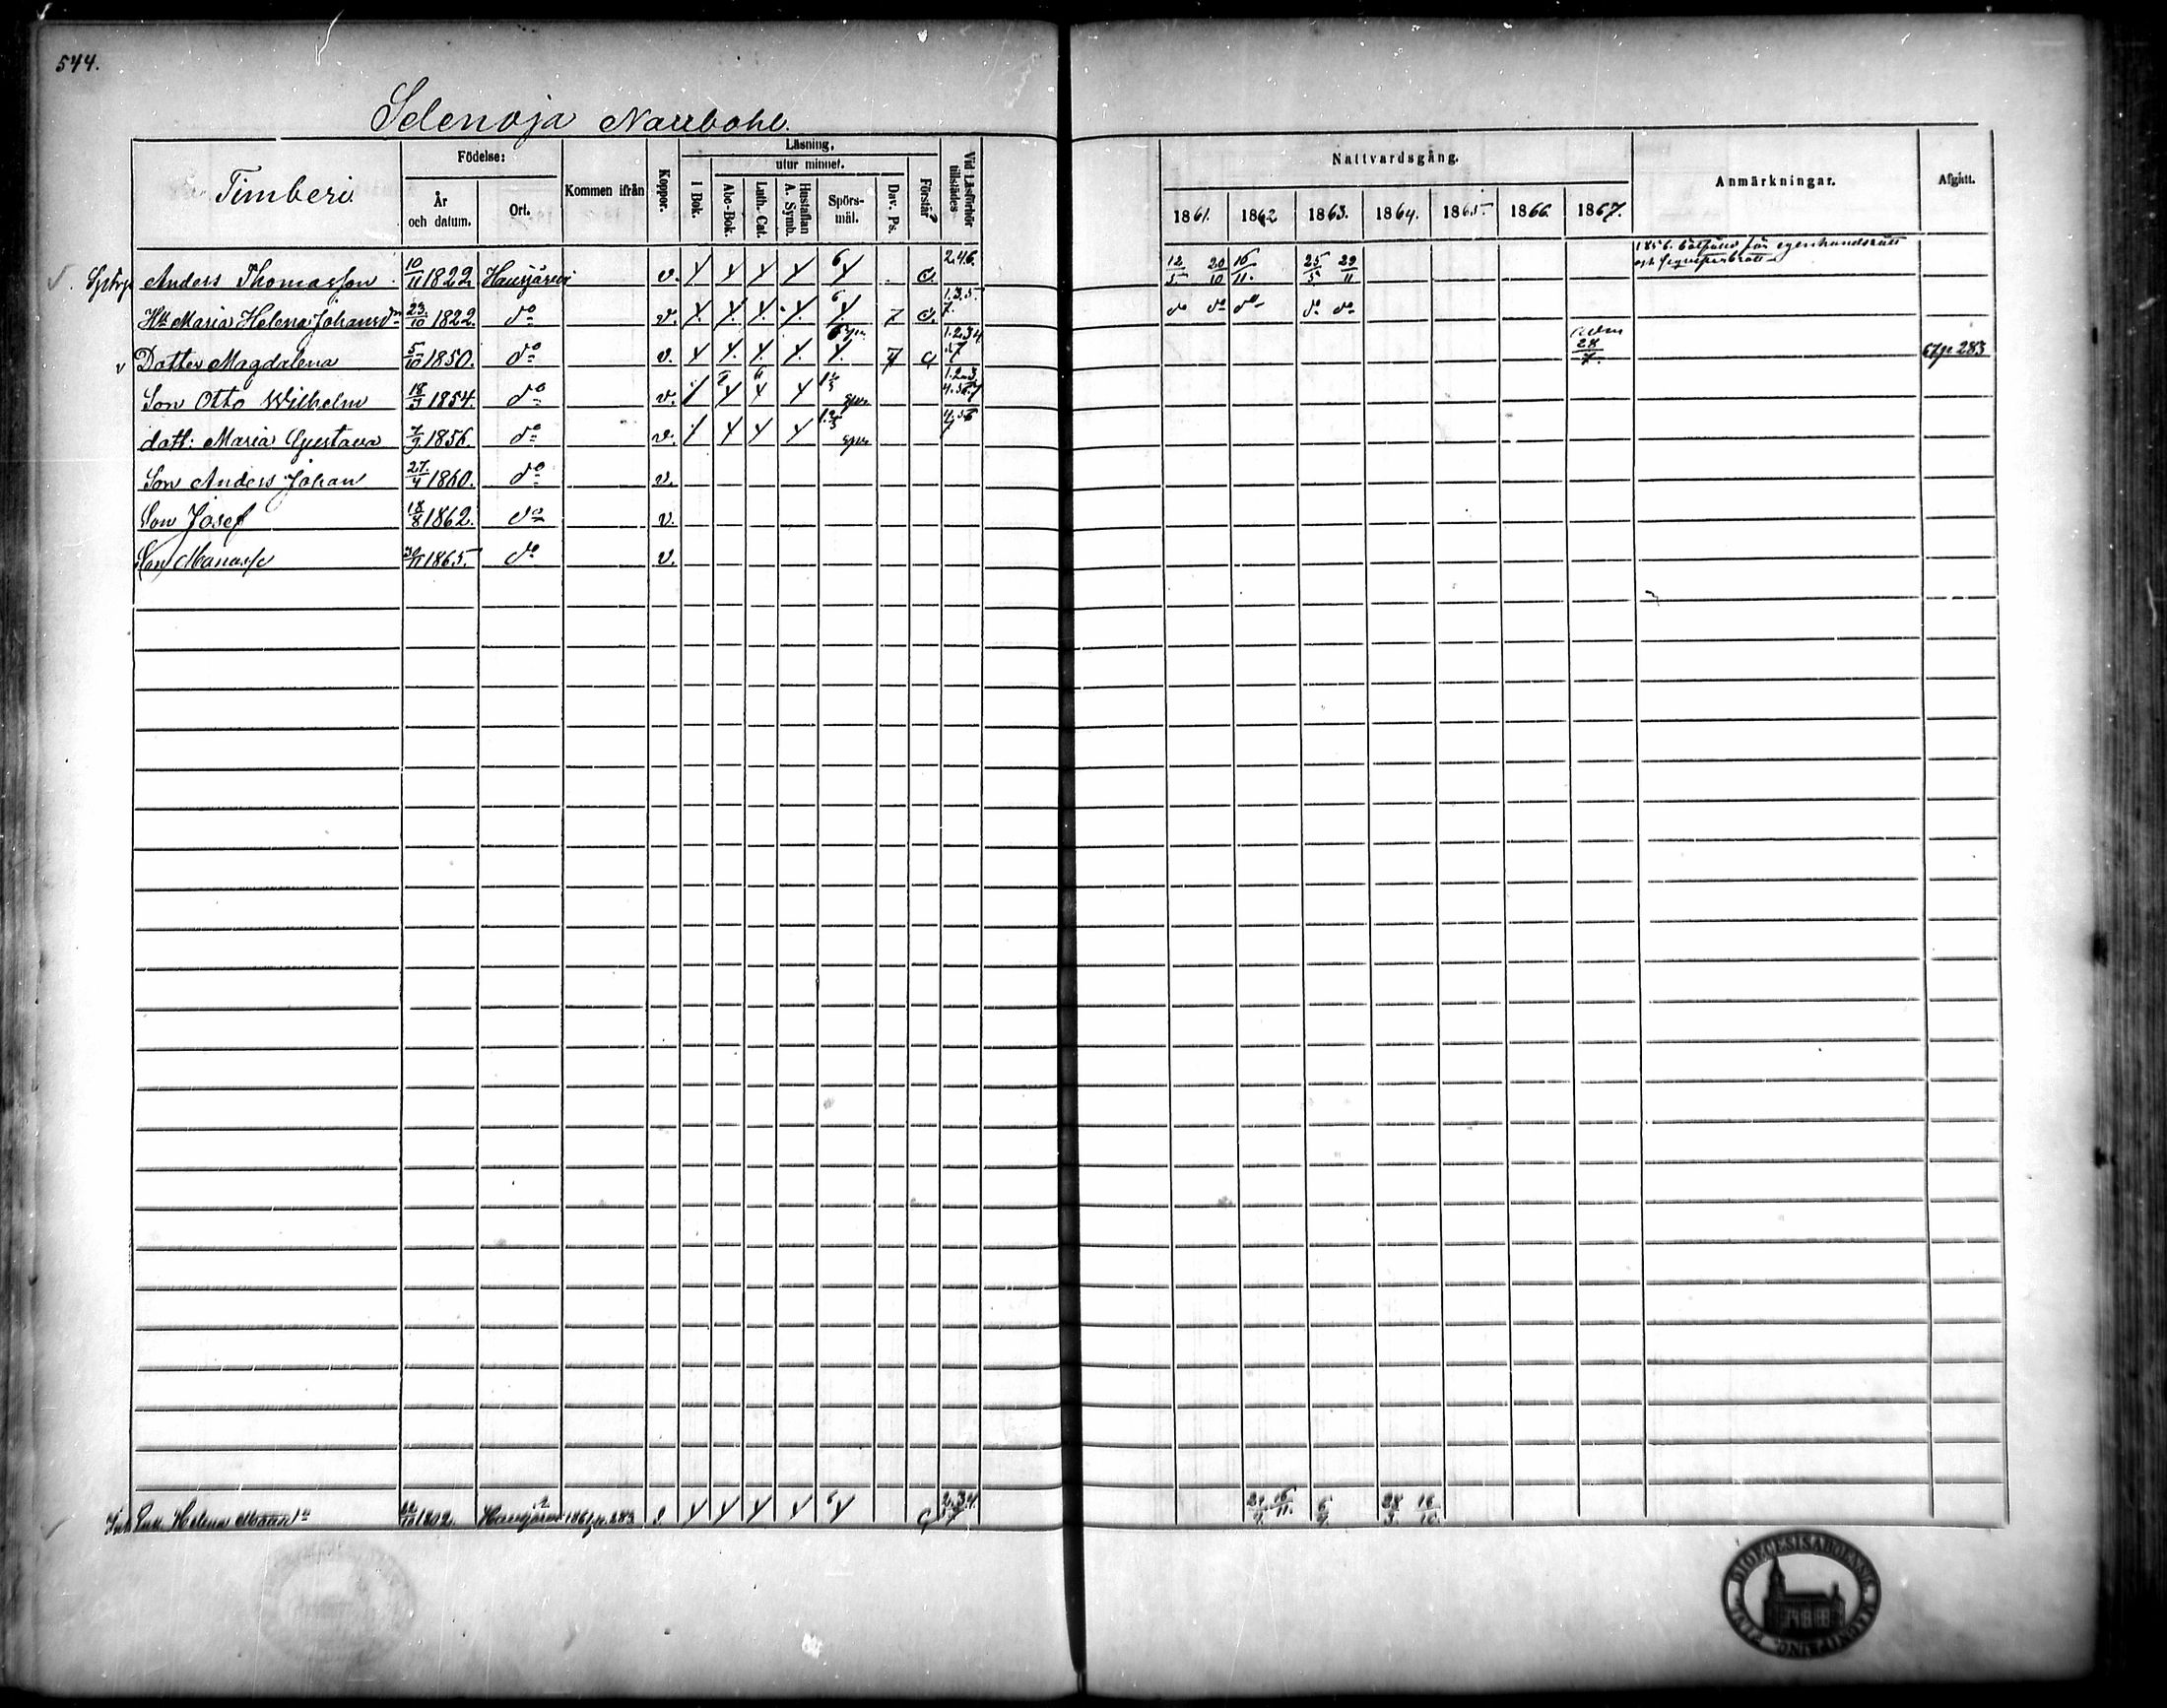 544.
Selenoja Naulbohl.
Timberi
Födelse:
År och datum.
Ort.
Kommen ifrån
Koppor.
Läsning,
I Bok.
utur minnet.
Abc-Bok.
Luth. Cat.
Hustaflan A. Symb.
Spörs-mål.
Dav. Ps.
Förstår?
Vid Läsförhör tillstädes
Nattvardsgång.
1861. 1862 1863. 1864. 1865. 1866. 1867.
Anmärkningar.
Afgått.
Anders Thomasson 10/11 1822 Hausjärvi v. 6 c. 2.4.6. 12/5 20/10 16/11. 25/5 29/11
1856. botfälld för egenhandsrätt
Hu Maria Helena Johansdr 23/10 1822. do v. 6 7 c. 1.3.5. 7. do do do do do
Dotter Magdalena 5/10 1850. do v. c 1.2.3.4 28/7. 67 p 283
Son Otto Wilhelm 18/3 1854. do v. 1.2.3 4.5.6.7
dott: Maria Gustava 7/9 1856. do v. 4.5.6 7
Son Anders Johan 27/4 1860. do v.
Son Josef 18/8 1862. do v.
Son Manasse 30/11 1865. do v.
Enk. Helena 1802. Hausjärvi 1861 p. 283 v. 6 c 2.3.4. 16/11. 6/9. 28/3. 16/10.
DIOECESIS ABOENSIS